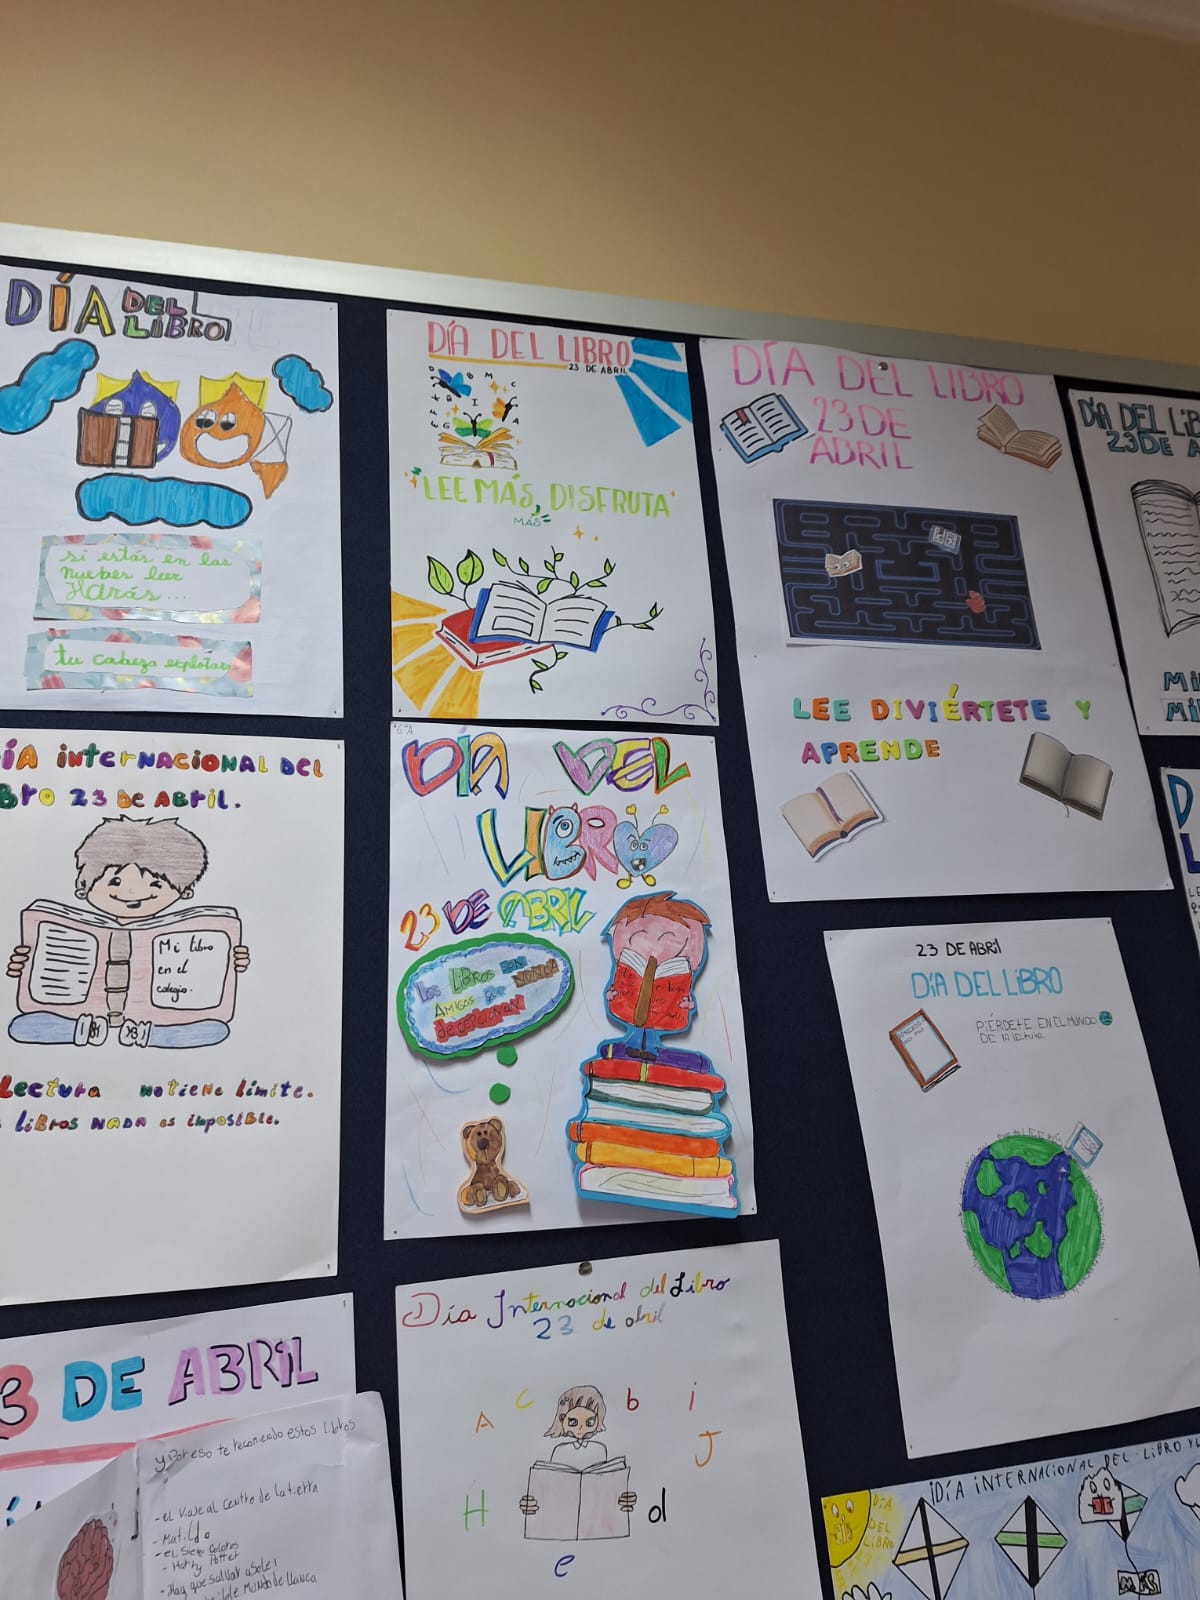 DÍA DEL
LIBRO
si estás en las
nubes leer
Harás...
tu cabeza explotará
DÍA DEL LIBRO
23 DE ABRIL
"LEE MÁS, DISFRUTA"
MÁS
DÍA DEL LIBRO
23 DE
ABRIL
LEE DIVIÉRTETE Y
APRENDE
DÍA DEL
23 DE
DÍA INTERNACIONAL DEL
23 DE ABRIL.
Mi libro
en el
colegio.
Lectura no tiene límite.
LIBROS NADA es imposible.
6ºA
DÍA DEL
LIBRO
23 DE ABRIL
Los LiBROS SON
AMIGOS que NUNCA
decepcionan
23 DE ABRIL
DÍA DEL LIBRO
PIÉRDETE EN EL MUNDO
DE la lectura.
3 DE ABRIL
y Por eso te recomiendo estos libros
- el Viaje al centro de la tierra
- Matilda
- el Siete Colores
- Harry Potter
- ¡Hay que salvar a Sole!
Día Internacional del Libro
23 de abril
A C b i
J
H d
e
¡DÍA INTERNACIONAL DEL LIBRO
DÍA
DEL
LIBRO